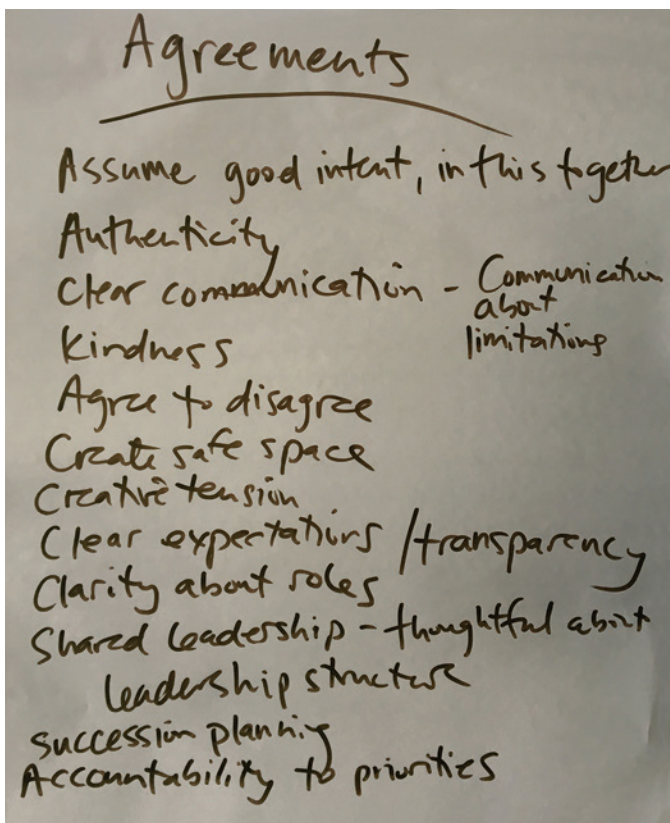 Agreements
Assume good intent, in this together
Authenticity
Clear communication - Communication
about
limitations
Kindness
Agree to disagree
Create safe space
Creative tension
Clear expectations / transparency
Clarity about roles
Shared leadership - thoughtful about
leadership structure
Succession planning
Accountability to priorities